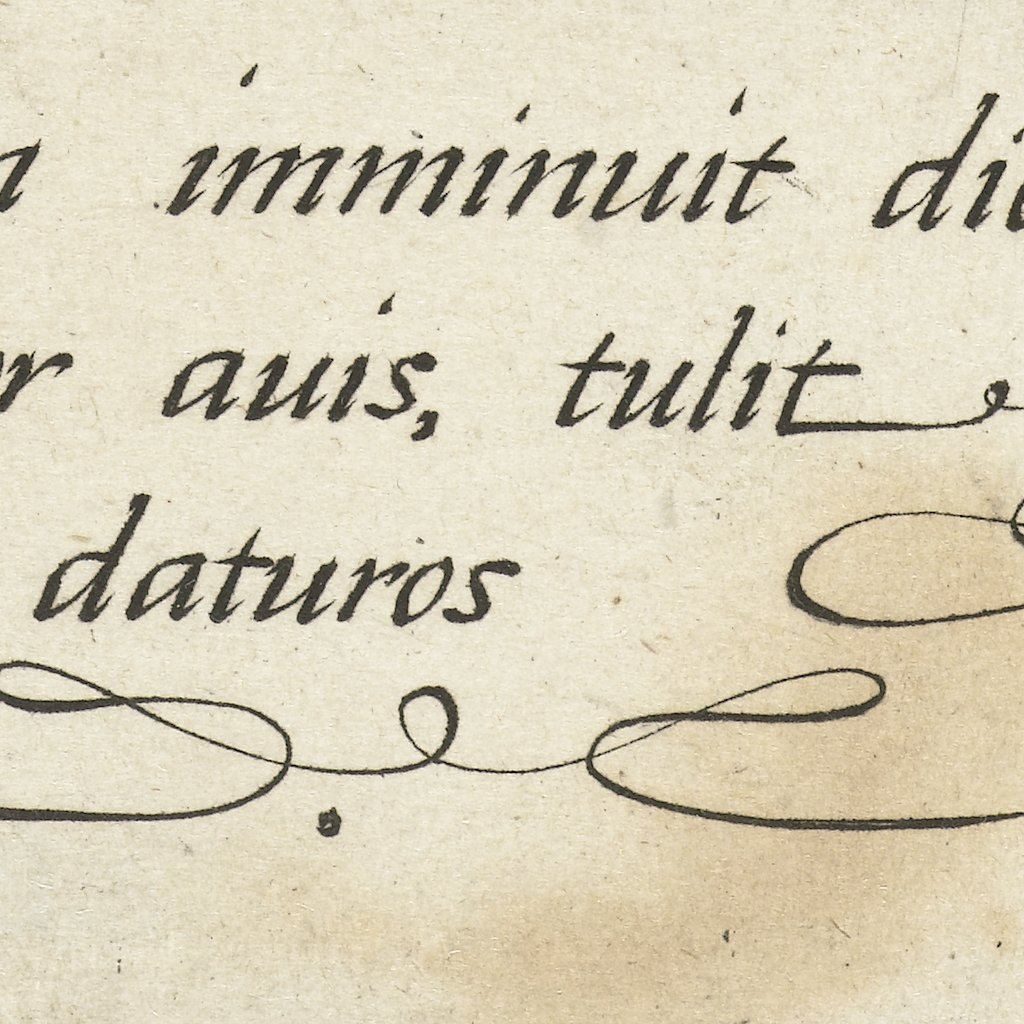 imminuit
auis, tulit
daturos